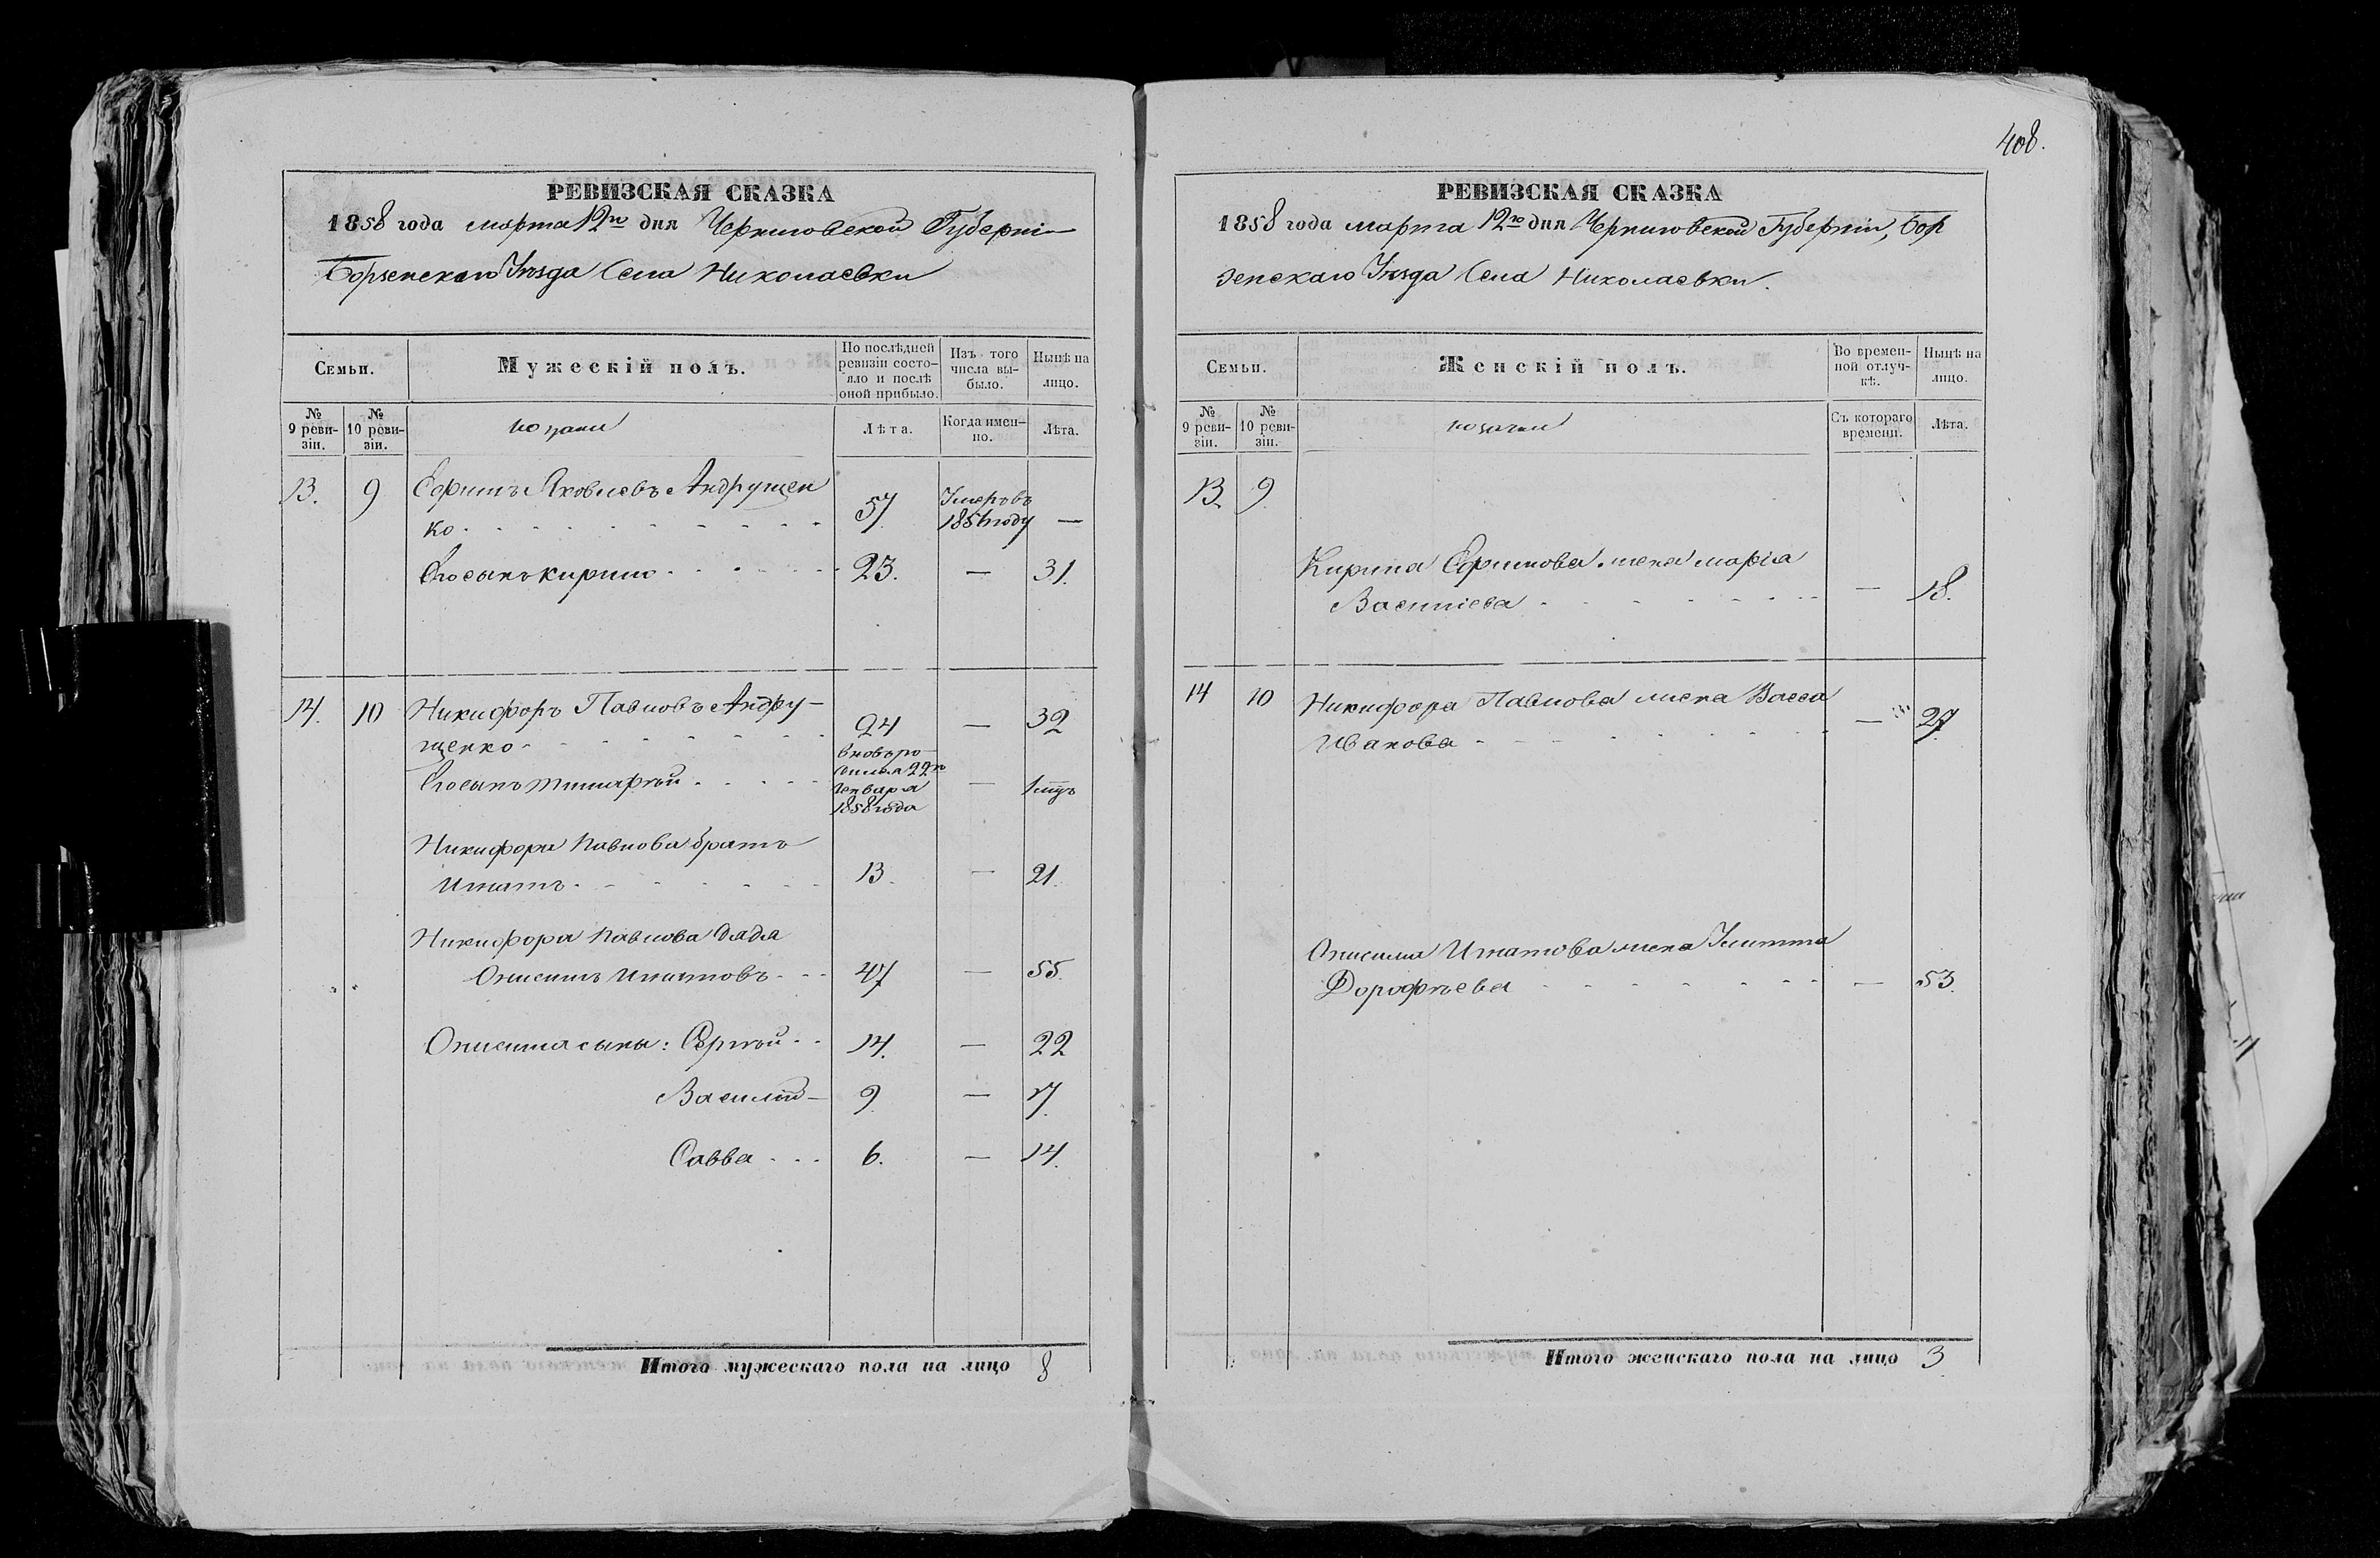 408.
РЕВИЗСКАЯ СКАЗКА
1858 года марта 12го дня Черниговской Губерніи
Борзенскаго Уѣзда Села Николаевки
Семьи.
Мужескій полъ.
По послѣдней ревизіи состояло и послѣ оной прибыло.
Изъ того числа выбыло.
Нынѣ на лицо.
№ 9 ревизіи.
№ 10 ревизіи.
козаки
Лѣта.
Когда именно.
Лѣта.
13. 9 Ефимъ Яковлевъ Андрущен
ко 57 Умеръ въ 1856 году —
Его сынъ Кирило 23. — 31.
14. 10 Никифоръ Павловъ Андру-
щенко 24 — 32
Его сынъ Тимофѣй вновь родился 22го Генваря 1858 года — 1 мцъ
Никифора Павлова братъ
Игнатъ 13. — 21.
Никифора Павлова дядя
Онисимъ Игнатовъ 47 — 55.
Онисима сыны: Сергѣй 14. — 22
Василій 9 — 17.
Савва 6. — 14.
Итого мужескаго пола на лицо 8
РЕВИЗСКАЯ СКАЗКА
1858 года марта 12го дня Черниговской Губерніи, Бор
зенскаго Уѣзда Села Николаевки.
Семьи.
Женскій полъ.
Во временной отлучкѣ.
Нынѣ на лицо.
№ 9 ревизіи.
№ 10 ревизіи.
козачки
Съ котораго времени.
Лѣта.
13 9
Кирила Ефимова жена Марія
Василіева — 18.
14 10 Никифора Павлова жена Васса
Иванова — 27
Онисима Игнатова жена Улита
Дорофѣева — 53.
Итого женскаго пола на лицо 3